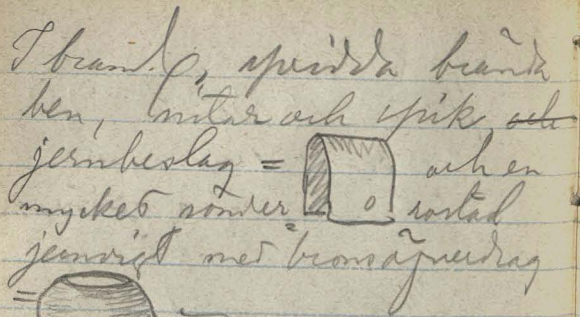 I brandl., spridda brända
ben, nitar och spik, och
jernbeslag = och en
mycket sönder= rostad
jernvigt med bronsöfverdrag
=